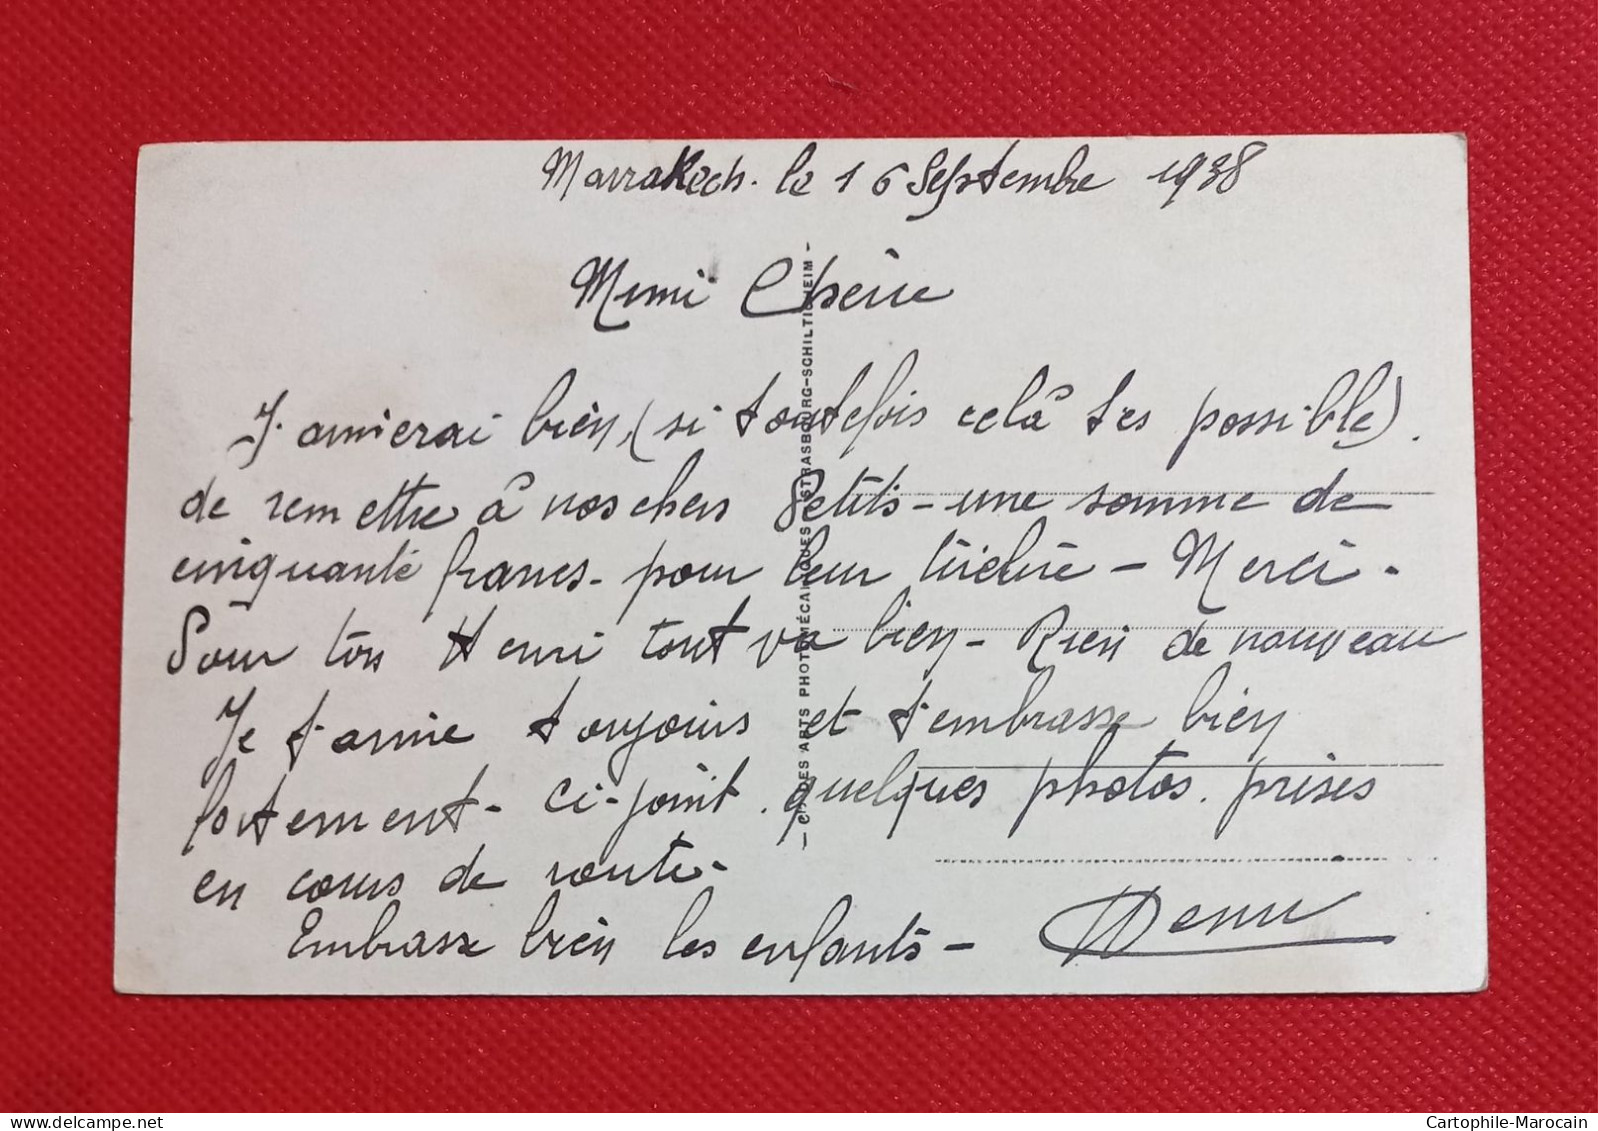 Marrakech. le 16 Septembre 1938
Mimi Chérie
J'aimerai bien, (si toutefois celà t'es possible).
de remettre à nos chers Petits - une somme de
cinquante francs - pour leur tirelire - Merci -
Pour ton Henri tout va bien - Rien de nouveau
Je t'aime toujours et t'embrasse bien
fortement - ci-joint quelques photos. prises
en cours de route -
Embrasse bien les enfants -
Henri
- CIE DES ARTS PHOTOMÉCANIQUES STRASBOURG-SCHILTIGHEIM -
Cartophile-Marocain